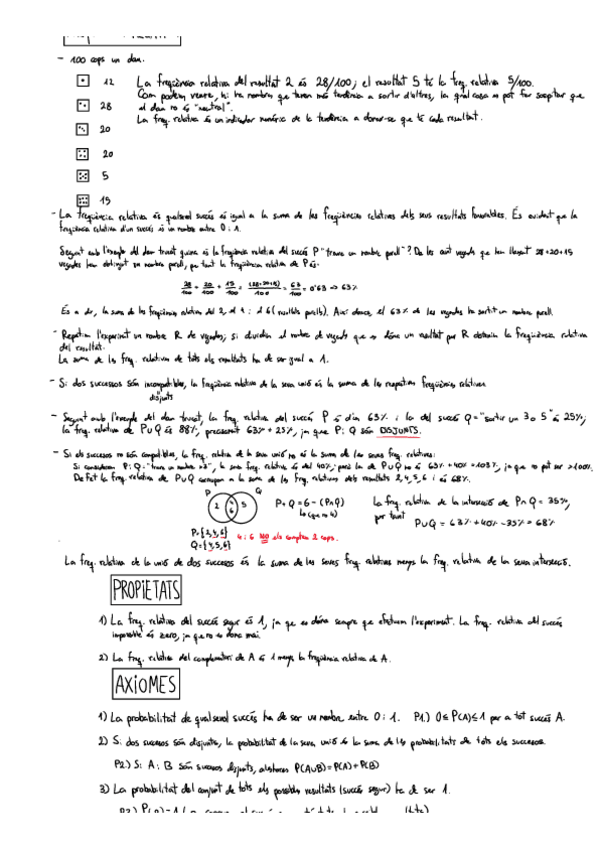 - 100 cops un dau.
12 La freqüència relativa del resultat 2 és 28/100; el resultat 5 té la freq. relativa 5/100.
Com podem veure, hi ha nombres que tenen més tendència a sortir d'altres, la qual cosa ens pot fer sospitar que
28 el dau no és "neutral".
La freq. relativa és un indicador numèric de la tendència a donar-se que té cada resultat.
20
20
5
15
- La freqüència relativa de qualsevol succés és igual a la suma de les freqüències relatives dels seus resultats favorables. És evident que la
freqüència relativa d'un succés és un nombre entre 0 i 1.
Seguint amb l'exemple del dau trucat quina és la freqüència relativa del succés P "treure un nombre parell"? De les cent vegades que hem llançat 28+20+15
vegades hem obtingut un nombre parell, per tant la freqüència relativa de P és:
28/100 + 20/100 + 15/100 = (28+20+15)/100 = 63/100 = 0'63 → 63%
És a dir, la suma de les freqüències relatives del 2, el 4 i el 6 (resultats parells). Així doncs, el 63% de les vegades ha sortit un nombre parell.
- Repetim l'experiment un nombre R de vegades; si dividim el nombre de vegades que es dóna un resultat per R obtenim la freqüència relativa
del resultat.
La suma de les freq. relatives de tots els resultats ha de ser igual a 1.
- Si dos successos són incompatibles, la freqüència relativa de la seva unió és la suma de les respectives freqüències relatives
disjunts
- Seguint amb l'exemple del dau trucat, la freq. relativa del succés P és d'un 63% i la del succés Q = "sortir un 3 o 5" és 25%;
la freq. relativa de P∪Q és 88%, precisament 63% + 25%, ja que P i Q són DISJUNTS.
- Si els successos no són compatibles, la freq. relativa de la seva unió no és la suma de les seves freq. relatives:
Si considerem P i Q = "treure un nombre >3", la seva freq. relativa és del 40%; però la de P∪Q no és 63% + 40% = 103%, ja que no pot ser >100%.
De fet la freq. relativa de P∪Q correspon a la suma de les freq. relatives dels resultats 2,4,5,6 i és 68%.
P Q
2 4 6 5
P+Q = 6 - (P∩Q)
La freq. relativa de la intersecció de P∩Q = 35%,
per tant
P∪Q = 63% + 40% - 35% = 68%
P={2,4,6}
Q={4,5,6}
4 i 6 NO els comptem 2 cops.
La freq. relativa de la unió de dos successos és la suma de les seves freq. relatives menys la freq. relativa de la seva intersecció.
PROPIETATS
1) La freq. relativa del succés segur és 1, ja que es dóna sempre que efectuem l'experiment. La freq. relativa del succés
impossible és zero, ja que no es dona mai.
2) La freq. relativa del complementari de A és 1 menys la freqüència relativa de A.
AXIOMES
1) La probabilitat de qualsevol succés ha de ser un nombre entre 0 i 1. P1.) 0≤P(A)≤1 per a tot succés A.
2) Si dos successos són disjunts, la probabilitat de la seva unió és la suma de les probabilitats de tots els successos.
P2) Si A i B són successos disjunts, aleshores P(A∪B)=P(A)+P(B)
3) La probabilitat del conjunt de tots els possibles resultats (succés segur) ha de ser 1.